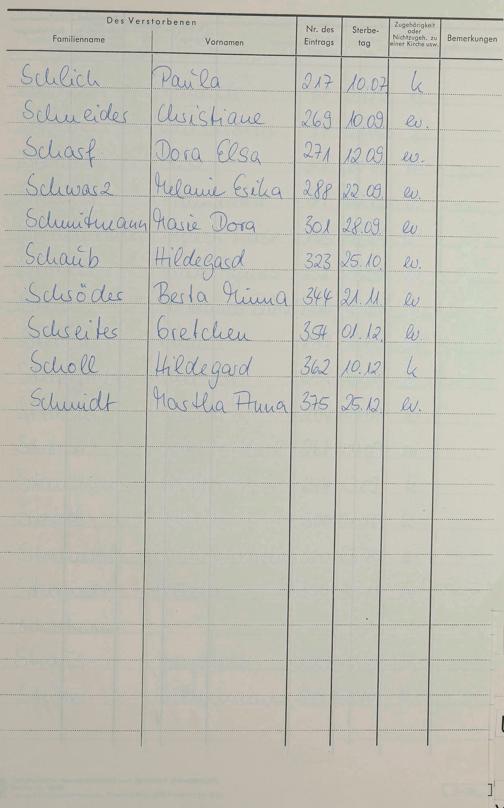 Des Verstorbenen
Familienname Vornamen Nr. des Eintrags Sterbe-tag Zugehörigkeit oder Nichtzugeh. zu einer Kirche usw. Bemerkungen
Schlich Paula 217 10.07 k
Schneider Christiane 269 10.09. ev.
Scharf Dora Elsa 271 12.09. ev.
Schwarz Melanie Erika 288 22.09. ev.
Schmitmann Marie Dora 301 28.09. ev
Schaub Hildegard 323 25.10. ev.
Schröder Berta Minna 344 21.11. ev
Schreiter Gretchen 354 01.12. ev.
Scholl Hildegard 362 10.12. k
Schmidt Martha Anna 375 25.12. ev.